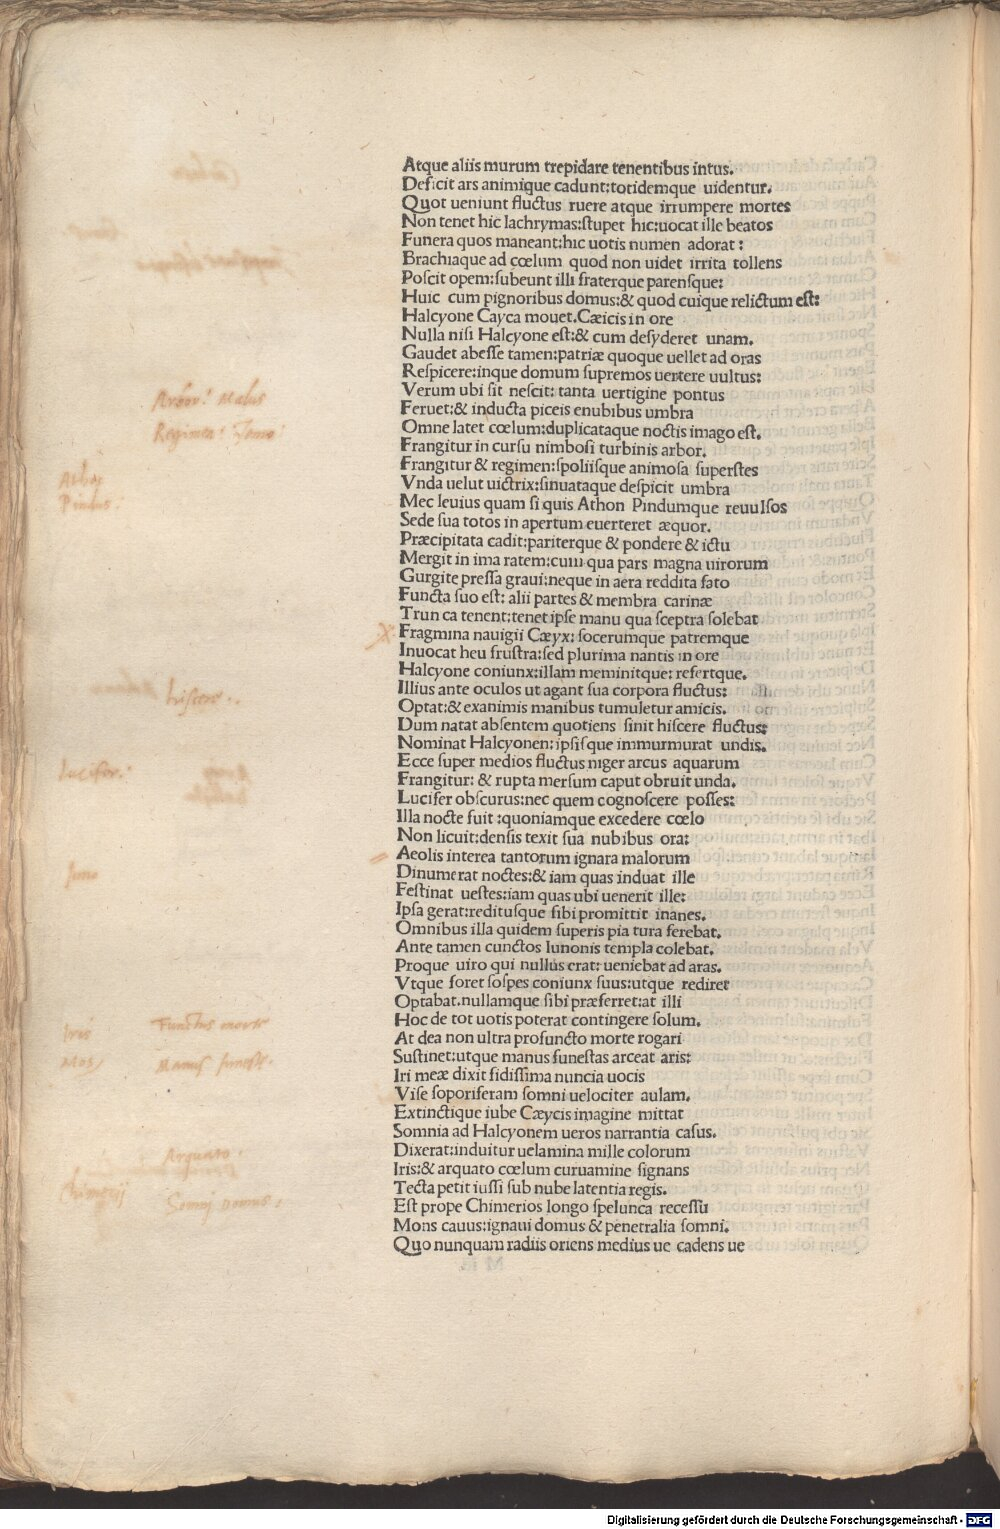 Atque aliis murum trepidare tenentibus intus.
Deficit ars animique cadunt:totidemque uidentur.
Quot ueniunt fluctus ruere atque irrumpere mortes
Non tenet hic lachrymas:stupet hic:uocat ille beatos
Funera quos maneant:hic uotis numen adorat:
Brachiaque ad cœlum quod non uidet irrita tollens
Poscit opem:subeunt illi fraterque parensque:
Huic cum pignoribus domus:& quod cuique relictum est:
Halcyone Cayca mouet.Cæicis in ore
Nulla nisi Halcyone est:& cum desyderet unam.
Gaudet abesse tamen:patriæ quoque uellet ad oras
Respicere:inque domum supremos uertere uultus:
Verum ubi sit nescit: tanta uertigine pontus
Feruet:& inducta piceis enubibus umbra
Omne latet cœlum:duplicataque noctis imago est.
Arbor: Malus
Frangitur in cursu nimbosi turbinis arbor.
Regimen: Temo:
Frangitur & regimen:spoliisque animosa superstes
Athos
Vnda uelut uictrix:sinuataque despicit umbra
Pindus:
Mec leuius quam si quis Athon Pindumque reuulsos
Sede sua totos in apertum euerteret æquor.
Præcipitata cadit:pariterque & pondere & ictu
Mergit in ima ratem:cum qua pars magna uirorum
Gurgite pressa graui:neque in aera reddita fato
Functa suo est: alii partes & membra carinæ
Trun ca tenent:tenet ipse manu qua sceptra solebat
Fragmina nauigii Cæyx: socerumque patremque
Inuocat heu frustra:sed plurima nantis in ore
Halcyone coniunx:illam meminitque: refertque.
Illius ante oculos ut agant sua corpora fluctus:
Optat:& exanimis manibus tumuletur amicis.
Hiscere.
Dum natat absentem quotiens sinit hiscere fluctus:
Nominat Halcyonen:ipsisque immurmurat undis.
Ecce super medios fluctus niger arcus aquarum
Frangitur: & rupta mersum caput obruit unda.
Lucifer:
Lucifer obscurus:nec quem cognoscere posses:
Illa nocte fuit :quoniamque excedere cœlo
Non licuit:densis texit sua nubibus ora:
Aeolis interea tantorum ignara malorum
Dinumerat noctes:& iam quas induat ille
Juno
Festinat uestes:iam quas ubi uenerit ille:
Ipsa gerat:reditusque sibi promittit inanes.
Omnibus illa quidem superis pia tura ferebat.
Ante tamen cunctos Iunonis templa colebat.
Proque uiro qui nullus erat: ueniebat ad aras.
Vtque foret sospes coniunx suus:utque rediret
Optabat.nullamque sibi præferret:at illi
Hoc de tot uotis poterat contingere solum.
Iris
Functus morte
At dea non ultra profuncto morte rogari
Mos
Manus funestæ.
Sustinet:utque manus funestas arceat aris:
Iri meæ dixit fidissima nuncia uocis
Vise soporiferam somni uelociter aulam.
Extinctique iube Cæycis imagine mittat
Somnia ad Halcyonem ueros narrantia casus.
Arquato.
Dixerat:induitur uelamina mille colorum
Iris:& arquato cœlum curuamine signans
Chimerij
Somni domus.
Tecta petit iussi sub nube latentia regis.
Est prope Chimerios longo spelunca recessu
Mons cauus:ignaui domus & penetralia somni.
Quo nunquam radiis oriens medius ue cadens ue
Digitalisierung gefördert durch die Deutsche Forschungsgemeinschaft - DFG